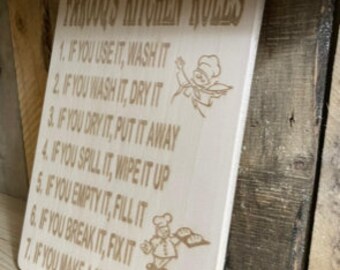 KITCHEN RULES
1. IF YOU USE IT, WASH IT
2. IF YOU WASH IT, DRY IT
3. IF YOU DRY IT, PUT IT AWAY
4. IF YOU SPILL IT, WIPE IT UP
5. IF YOU EMPTY IT, FILL IT
6. IF YOU BREAK IT, FIX IT
7. IF YOU MAKE